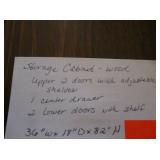 Storage Cabinet - wood
Upper 2 doors with adjustable
shelves
1 center drawer
2 lower doors with shelf
36" W x 18" D x 82" H